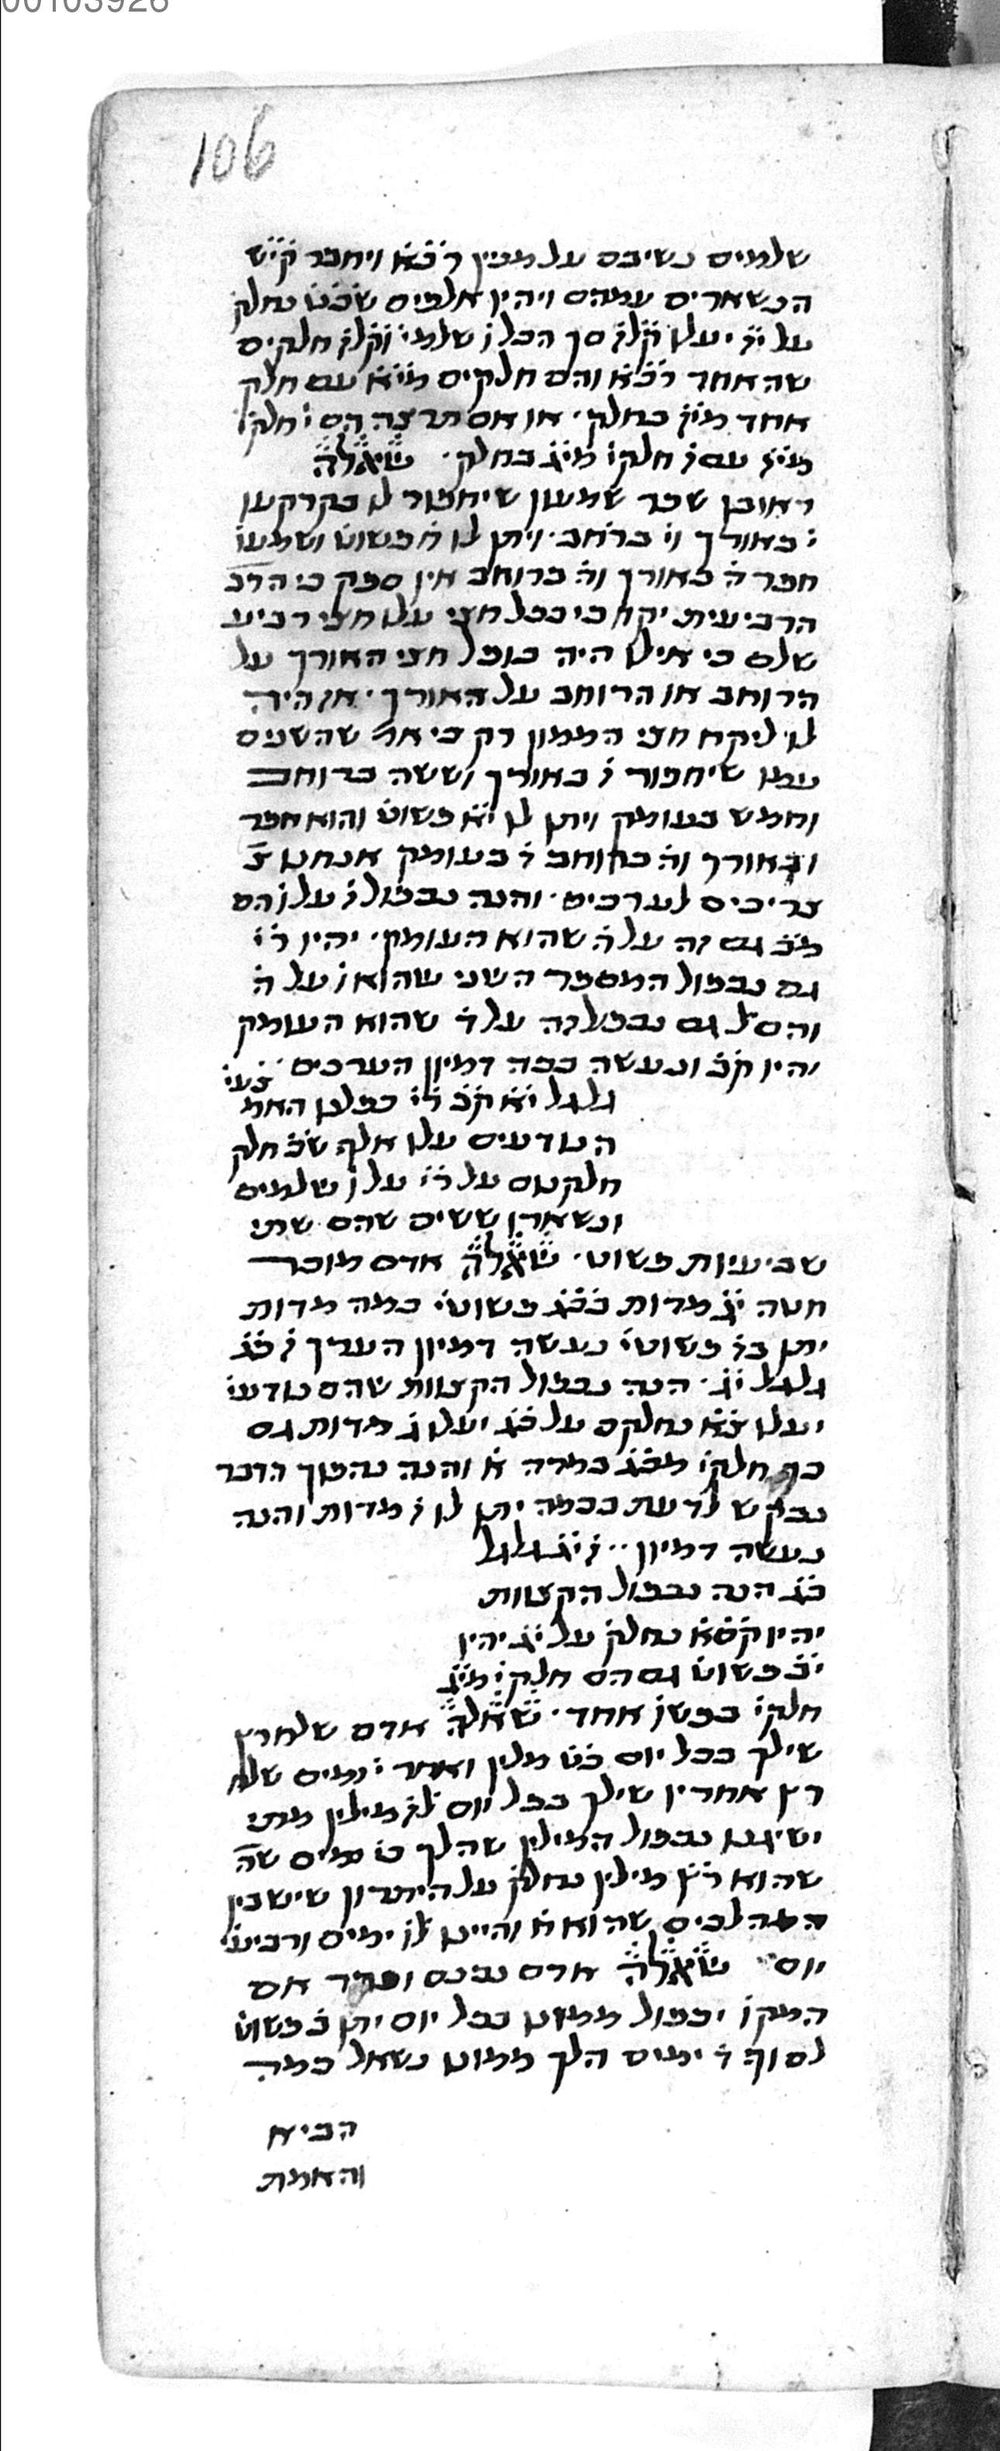 00103926
106
שלמים נשיבם על מנין רכ̇א̇ ויחבר ק̇י̇ש
הנשארים עמהם ויהיו אלפים ש̇כ̇ט̇ נחלק
על י̇ז̇ יעלו ק̇ל̇ז̇ סך הכל ו̇ שלמי' וק̇ל̇ז̇ חלקים
שהאחד ר̇כ̇א̇ והם חלקים מי̇א̇ עם חלק
אחד מי̇ז̇ בחלק. או אם תרצה הם י̇ חלקי'
מי̇ז̇ עם ז̇ חלקי' מי̇ג̇ בחלק. שאלה
ראובן שכר שמעון שיחפור לו בקרקעו
י̇ באורך וי̇ ברחב. ויתן לו ח̇ פשוט' ושמעו'
חפר ה̇ באורך וה̇ ברוחב אין ספק כי הרב
הרביעית יקח כי בכל חצי עלו חצי רביע
שלם כי אילו היה כופל חצי האורך על
הרוחב או הרוחב על האורך. אז היה
לו ליקח חצי הממון רק כי אח' שהשנים
עמו שיחפור ז̇ באורך וששה ברוחב
וחמש בעומק ויתן לו י̇א̇ פשוט' והוא חפר
ו̇ באורך וה̇ ברוחב ד̇ בעומק אנחנו צ'
צריכים לערכים. והנה נכפול ז̇ על ו̇ הם
מ̇ב̇ גם זה על ה̇ שהוא העומק. יהיו ר̇י̇
גם נכפול המספר השני שהוא ו̇ על ה̇
והם ל̇ גם נכפול זה על ד̇ שהוא העומק
יהיו ק̇כ̇ ונעשה ככה דמיון הערכים.
גלגל י̇א̇ ק̇כ̇ ר̇י̇ כפלנו האמצעי'
הנודעים עלו אלף ש̇כ̇ חלק
חלקנום על ר̇י̇ עלו ו̇ שלמים
ונשארו ששים שהם שתי
שביעיות פשוט. שאלה אדם מוכר
חטה י̇ג̇ מדות בכ̇ג̇ פשוטי' כמה מדות
יתן בז̇ פשוטי' נעשה דמיון הערך ז̇ כ̇ג̇
גלגל י̇ג̇. הנה נכפול הקצוות שהם נודעי'
יעלו צ̇א̇ נחלקם על כ̇ג̇ יעלו ג̇ מדות גם
כב̇ חלקי' מכ̇ג̇ במדה א̇ והנה נהפוך הדבר
נבקש לדעת בכמה יתן לו ז̇ מדות והנה
נעשה דמיון .. ז̇ י̇ג̇ גלגל
כ̇ג̇ הנה נכפול הקצוות
יהיו ק̇ס̇א̇ נחלק על י̇ג̇ יהיו
י̇ב̇ פשוט' גם הם חלקי' מי̇ג̇
חלקי' בפשו' אחד. שאלה אדם שלח רץ
שילך בכל יום כ̇ט̇ מלין ואחר י̇ ימים שלח
רץ אחר ין שילך בכל יום ל̇ז̇ מילין מתי
ישיגנו נכפול המילין שהלך בי̇ ימים שה'
שהוא ר̇ץ̇ מילין נחלק על היתרון שיש בין
המהלכים שהוא ח̇ והיינו ל̇ו̇ ימים ורביעי'
יום שאלה אדם נכנס ונדר אם
המקו' יכפול ממונו בכל יום יתן ב̇ פשוט'
לסוף ד̇ ימים הלך ממונו נשאל כמה
הביא
והאמת